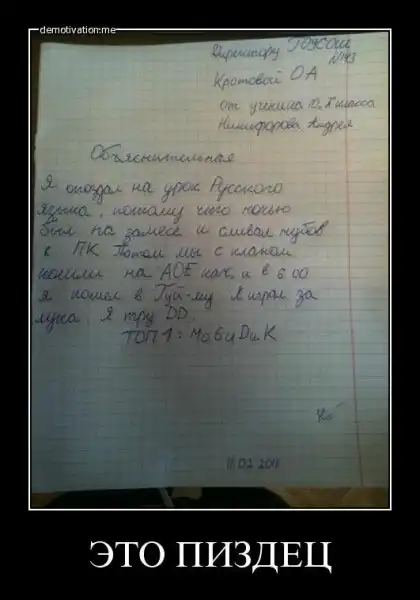 demotivation.me
Директору ГОУСОШ
№143
Кротовой О А
от ученика 10 "А" класса
Никифорова Андрея
Объяснительная
Я опоздал на урок Русского
языка, потому что ночью
был на замесе и сливал нубов
в ПК Потом мы с кланом
пошли на АОЕ кач, и в 6 00
я пошел в Гуй-му Я играл за
лука. Я тру DD.
ТОП 1:
11.02 2011
ЭТО ПИЗДЕЦ